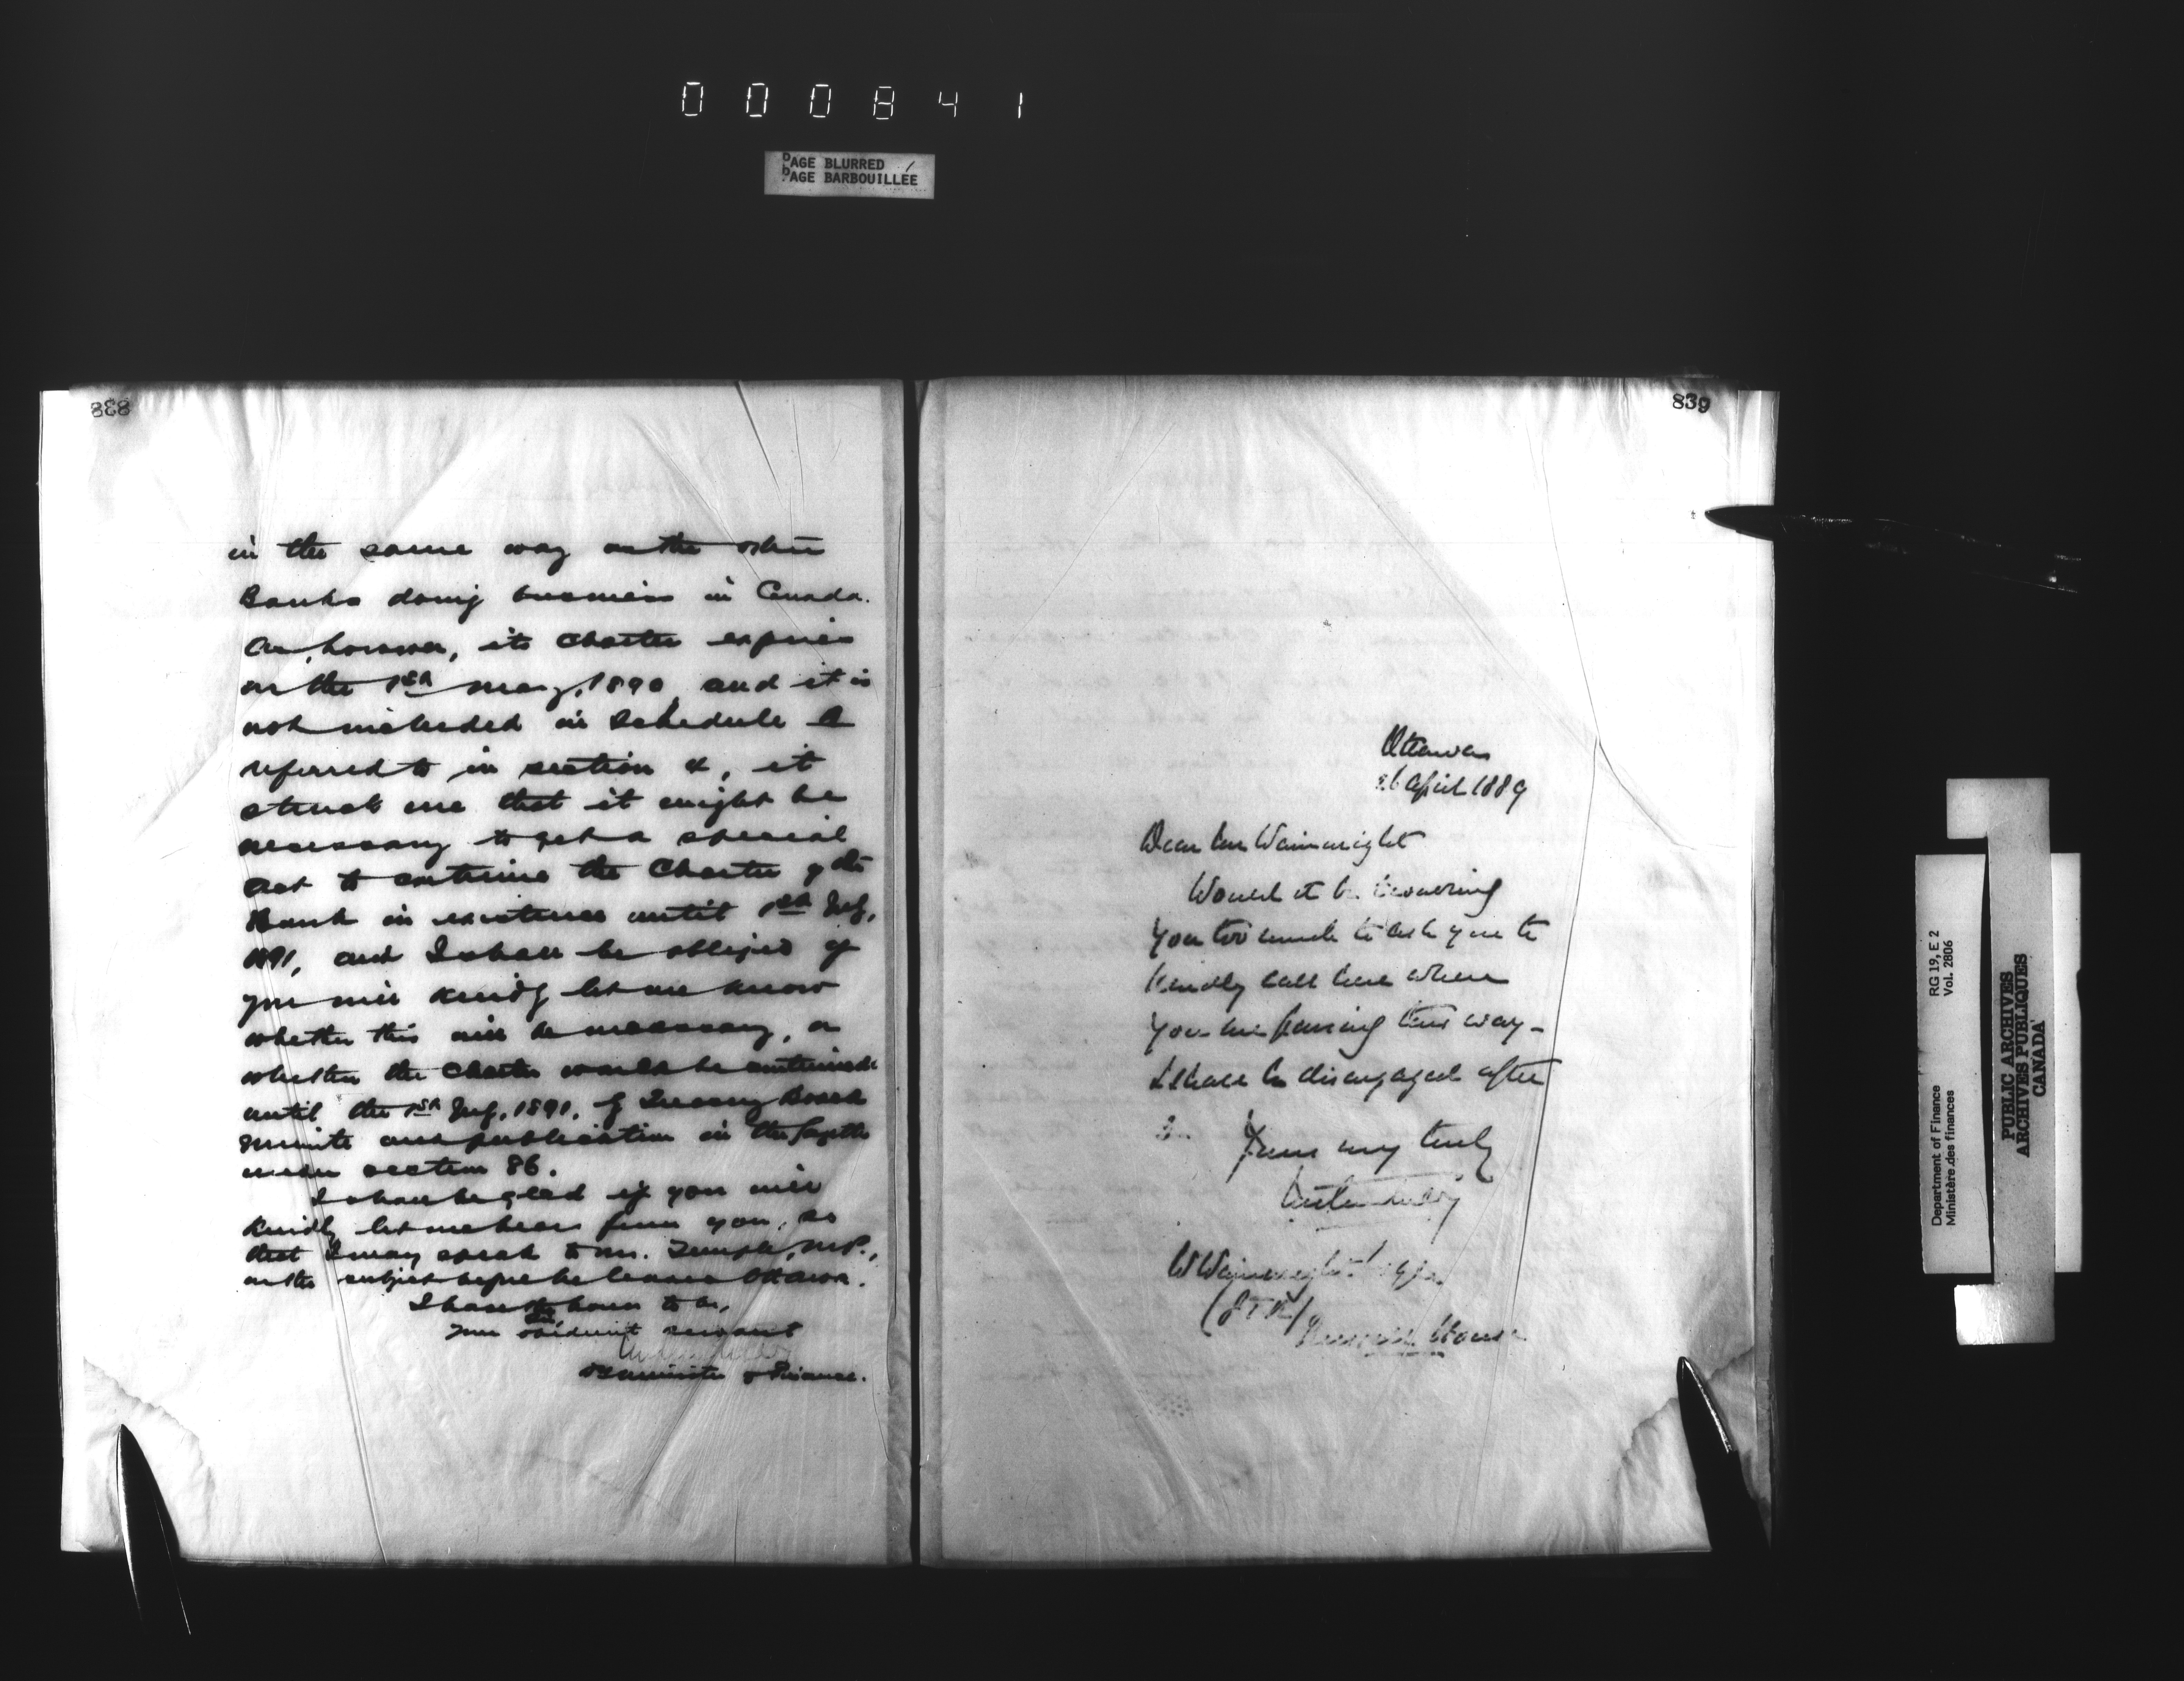 000841
PAGE BLURRED
PAGE BARBOUILLÉE
838
in the same way as the other
Banks doing business in Canada.
As, however, its Charter expires
on the 1st May, 1890, and it is
not included in Schedule A
referred to in section 4, it
struck me that it might be
necessary to get a special
Act to continue the Charter of the
Bank in existence until 1st July,
1891, and I shall be obliged if
you will kindly let me know
whether this will be necessary, or
whether the Charter would be continued
until the 1st July, 1891, by Treasury Board
Minute and publication in the Gazette
under section 86.
I shall be glad if you will
kindly let me hear from you, so
that I may speak to Mr. Temple, M.P.,
on the subject before he leaves Ottawa.
I have the honor to be,
Your obedient servant
Minister of Finance.
839
Ottawa
26 April 1889
Dear Mr Wainwright
Would it be
you too much to ask you to
kindly call here when
you are passing this way -
I shall be disengaged after
Yours very truly
W Wainwright
(GTR)
Russell House
Department of Finance RG 19, E 2
Ministère des finances Vol. 2806
PUBLIC ARCHIVES
ARCHIVES PUBLIQUES
CANADA